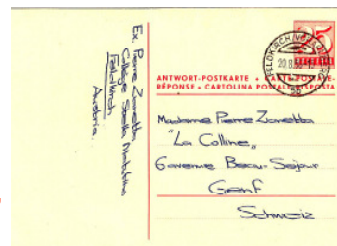 Ex. Pierre Zanetta
Collège Stella Matutina
Feldkirch
Austria.
25
FELDKIRCH
20.8.
ANTWORT-POSTKARTE + CARTE POSTALE-
RÉPONSE + CARTOLINA POSTALE RISPOSTA
Madame Pierre Zanetta
"La Colline"
6 avenue Beau-Séjour
Genf
Schweiz